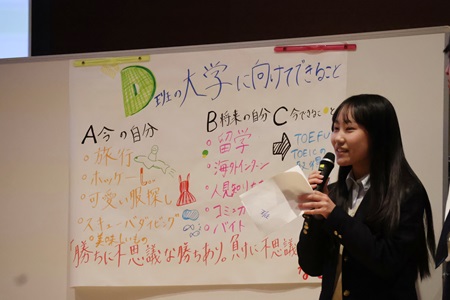 D班の大学に向けてできること
A 今の自分
・旅行
・ホッケー
・可愛い服探し
・スキューバダイビング
・美味しいもの
B 将来の自分
・留学
・海外インターン
・人見知り
・コミュ力
・バイト
C 今できること
TOEFL
TOEICの
「勝ちに不思議な勝ちあり。負けに不思議